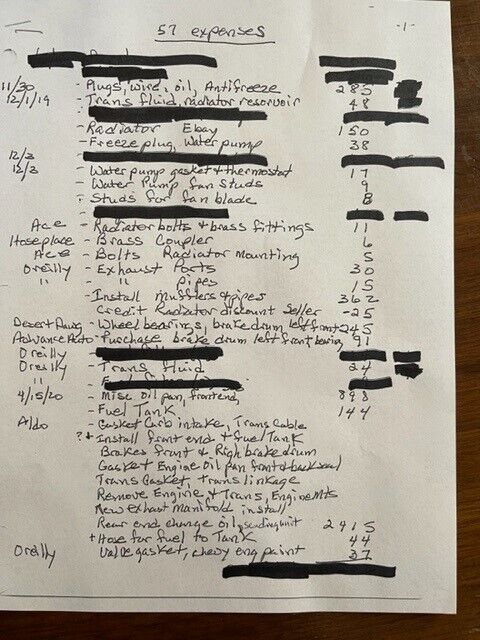 57 expenses -1-
11/30 - Plugs, wire, oil, Antifreeze 285
12/1/19 - Trans fluid, radiator reservoir 48
- Radiator Ebay 150
- Freeze plug, Water pump 38
12/3
12/3 - Water pump gasket & thermostat 17
- Water Pump fan studs 9
- Studs for fan blade 8
Ace - Radiator bolts & brass fittings 11
Hoseplace - Brass Coupler 6
Ace - Bolts Radiator mounting 5
Oreilly - Exhaust Ports 30
" - " pipes 15
- Install mufflers & pipes 362
Credit Radiator discount Seller -25
Desert Dawg - Wheel bearings, brake drum left front 245
Advance Auto - Purchase brake drum left front bearing 91
Oreilly
Oreilly - Trans fluid 24
"
4/15/20 - Misc oil pan, frontend, 898
- Fuel Tank 144
Aldo - Gasket Carb intake, Trans Cable
?+ Install front end & fuel Tank
Brakes front & Righ brake drum
Gasket Engine Oil pan front & back seal
Trans Gasket, trans linkage
Remove Engine & Trans, Engine Mts
New exhaust manifold install
Rear end change oil, sending unit 2415
+ Hose for fuel to Tank 44
Oreilly Valve gasket, chevy eng paint 37